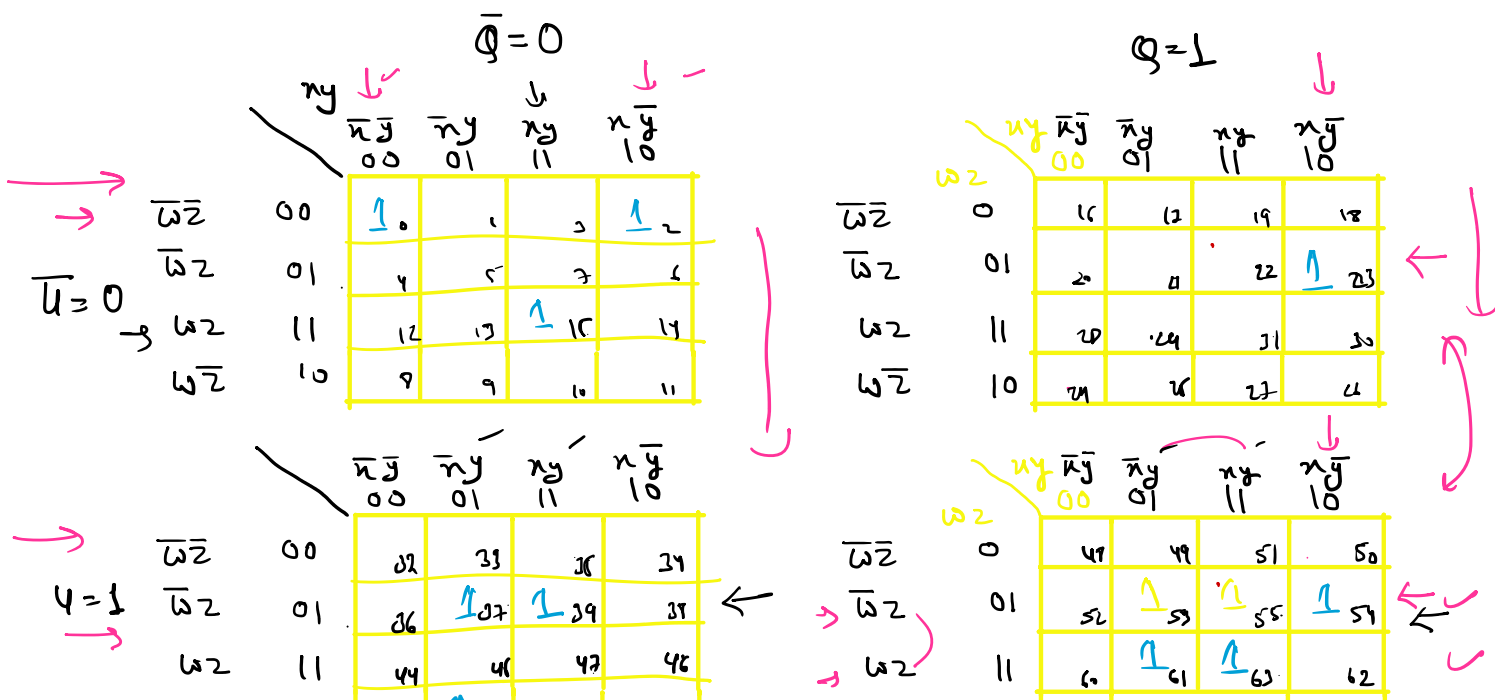 Q̅ = 0
Q = 1
xy
x̅y̅ x̅y xy xy̅
00 01 11 10
w̅z̅ 00 1 0 1 3 1 2
w̅z 01 4 5 7 6
u̅ = 0
wz 11 12 13 1 15 14
wz̅ 10 8 9 10 11
xy x̅y̅ x̅y xy xy̅
00 01 11 10
wz
w̅z̅ 0 16 17 19 18
w̅z 01 20 21 22 1 23
wz 11 28 29 31 30
wz̅ 10 24 25 27 26
x̅y̅ x̅y xy xy̅
00 01 11 10
w̅z̅ 00 32 33 35 34
u = 1
w̅z 01 36 1 37 1 39 38
wz 11 44 45 47 46
xy x̅y̅ x̅y xy xy̅
00 01 11 10
wz
w̅z̅ 0 48 49 51 50
w̅z 01 52 1 53 1 55 1 54
wz 11 60 1 61 1 63 62